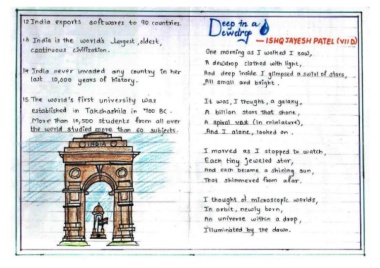 12 India exports softwares to 90 countries.
13 India is the world's largest, oldest,
continuous civilization.
14 India never invaded any country in her
last 10,000 years of history.
15 The world's first university was
established in Takshashila in 700 BC.
More than 10,500 students from all over
the world studied more than 60 subjects.
INDIA
Deep in a
Dewdrop
- ISHQ JAYESH PATEL (VII D)
One morning as I walked I saw,
A dewdrop clothed with light,
And deep inside I glimpsed a swirl of stars,
All small and bright.
It was, I thought, a galaxy,
A billion stars that shone,
A spiral vast (in miniature),
And I alone, looked on.
I marved as I stopped to watch,
Each tiny jeweled star,
And each became a shining sun,
That shimmered from afar.
I thought of microscopic worlds,
In orbit, newly born,
An universe within a drop,
Illuminated by the dawn.